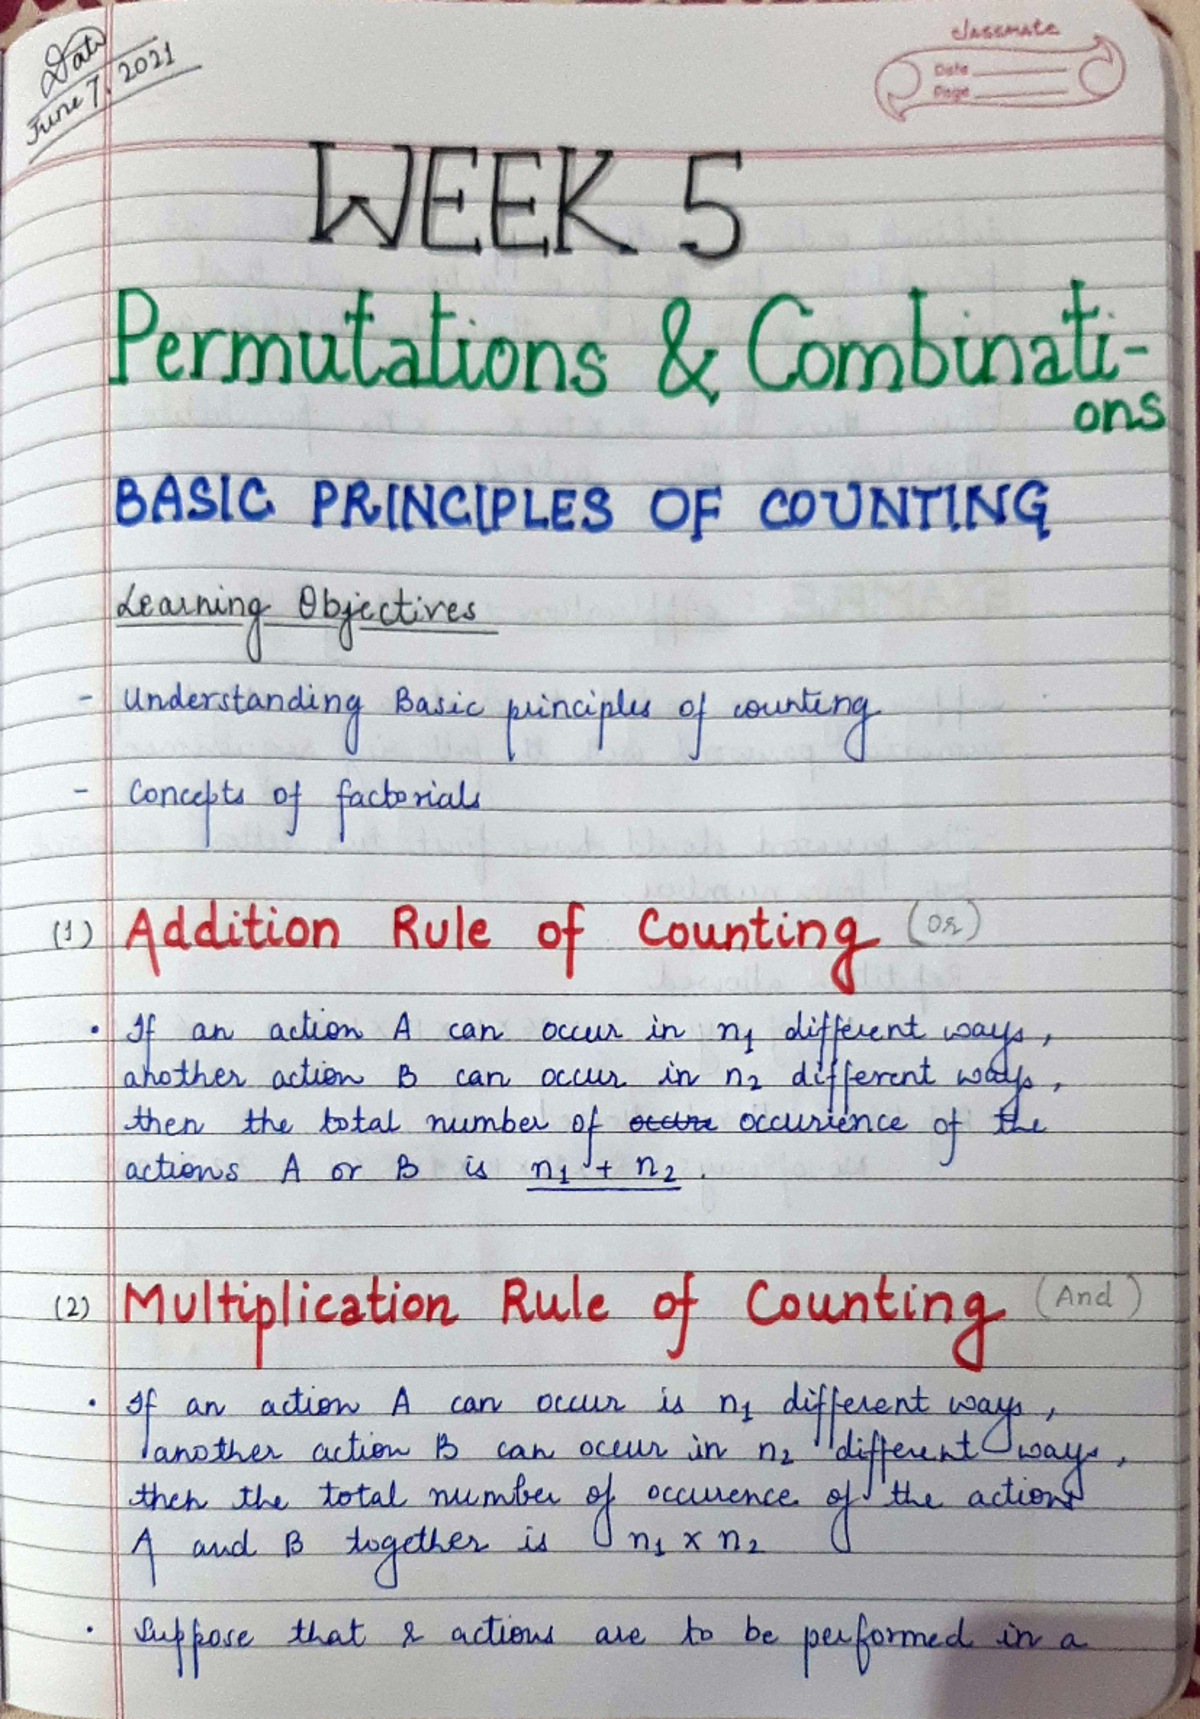 Date
June 7, 2021
classmate
Date
Page
WEEK 5
Permutations & Combinati-
ons
BASIC PRINCIPLES OF COUNTING
Learning Objectives
- Understanding Basic principles of counting
- Concepts of factorials
(1) Addition Rule of Counting (Or)
• If an action A can occur in n₁ different ways,
another action B can occur in n₂ different ways,
then the total number of occurience of the
actions A or B is n₁ + n₂.
(2) Multiplication Rule of Counting (And)
• If an action A can occur is n₁ different ways,
another action B can occur in n₂ different ways,
then the total number of occurence of the actions
A and B together is n₁ x n₂
• Suppose that r actions are to be performed in a